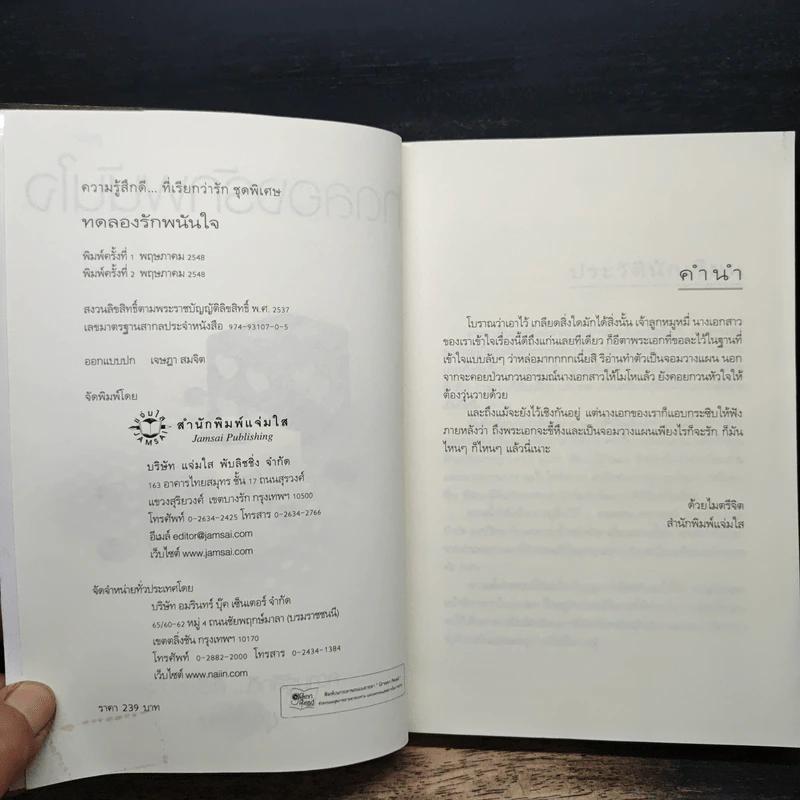 ความรู้สึกดี... ที่เรียกว่ารัก ชุดพิเศษ
ทดลองรักพนันใจ
พิมพ์ครั้งที่ 1 พฤษภาคม 2548
พิมพ์ครั้งที่ 2 พฤษภาคม 2548
สงวนลิขสิทธิ์ตามพระราชบัญญัติลิขสิทธิ์ พ.ศ. 2537
เลขมาตรฐานสากลประจำหนังสือ 974-93107-0-5
ออกแบบปก เจษฎา สมจิต
จัดพิมพ์โดย
แจ่มใส
JAMSAI
สำนักพิมพ์แจ่มใส
Jamsai Publishing
บริษัท แจ่มใส พับลิชชิ่ง จำกัด
163 อาคารไทยสมุทร ชั้น 17 ถนนสุรวงศ์
แขวงสุริยวงศ์ เขตบางรัก กรุงเทพฯ 10500
โทรศัพท์ 0-2634-2425 โทรสาร 0-2634-2766
อีเมล์ editor@jamsai.com
เว็บไซต์ www.jamsai.com
จัดจำหน่ายทั่วประเทศโดย
บริษัท อมรินทร์ บุ๊ค เซ็นเตอร์ จำกัด
65/60-62 หมู่ 4 ถนนชัยพฤกษ์มาลา (บรมราชชนนี)
เขตตลิ่งชัน กรุงเทพฯ 10170
โทรศัพท์ 0-2882-2000 โทรสาร 0-2434-1384
เว็บไซต์ www.naiin.com
ราคา 239 บาท
คำนำ
โบราณว่าเอาไว้ เกลียดสิ่งใดมักได้สิ่งนั้น เจ้าลูกหมูหมี่ นางเอกสาว
ของเราเข้าใจเรื่องนี้ดีถึงแก่นเลยทีเดียว ก็อีตาพระเอกที่ขอละไว้ในฐานที่
เข้าใจแบบลับๆ ว่าหล่อมากกกกเนี่ยสิ ริอ่านทำตัวเป็นจอมวางแผน นอก
จากจะคอยป่วนกวนอารมณ์นางเอกสาวให้โมโหแล้ว ยังคอยกวนหัวใจให้
ต้องวุ่นวายด้วย
และถึงแม้จะยังไว้เชิงกันอยู่ แต่นางเอกของเราก็แอบกระซิบให้ฟัง
ภายหลังว่า ถึงพระเอกจะขี้หึงและเป็นจอมวางแผนเพียงไรก็จะรัก ก็มัน
ไหนๆ ก็ไหนๆ แล้วนี่เนาะ
ด้วยไมตรีจิต
สำนักพิมพ์แจ่มใส